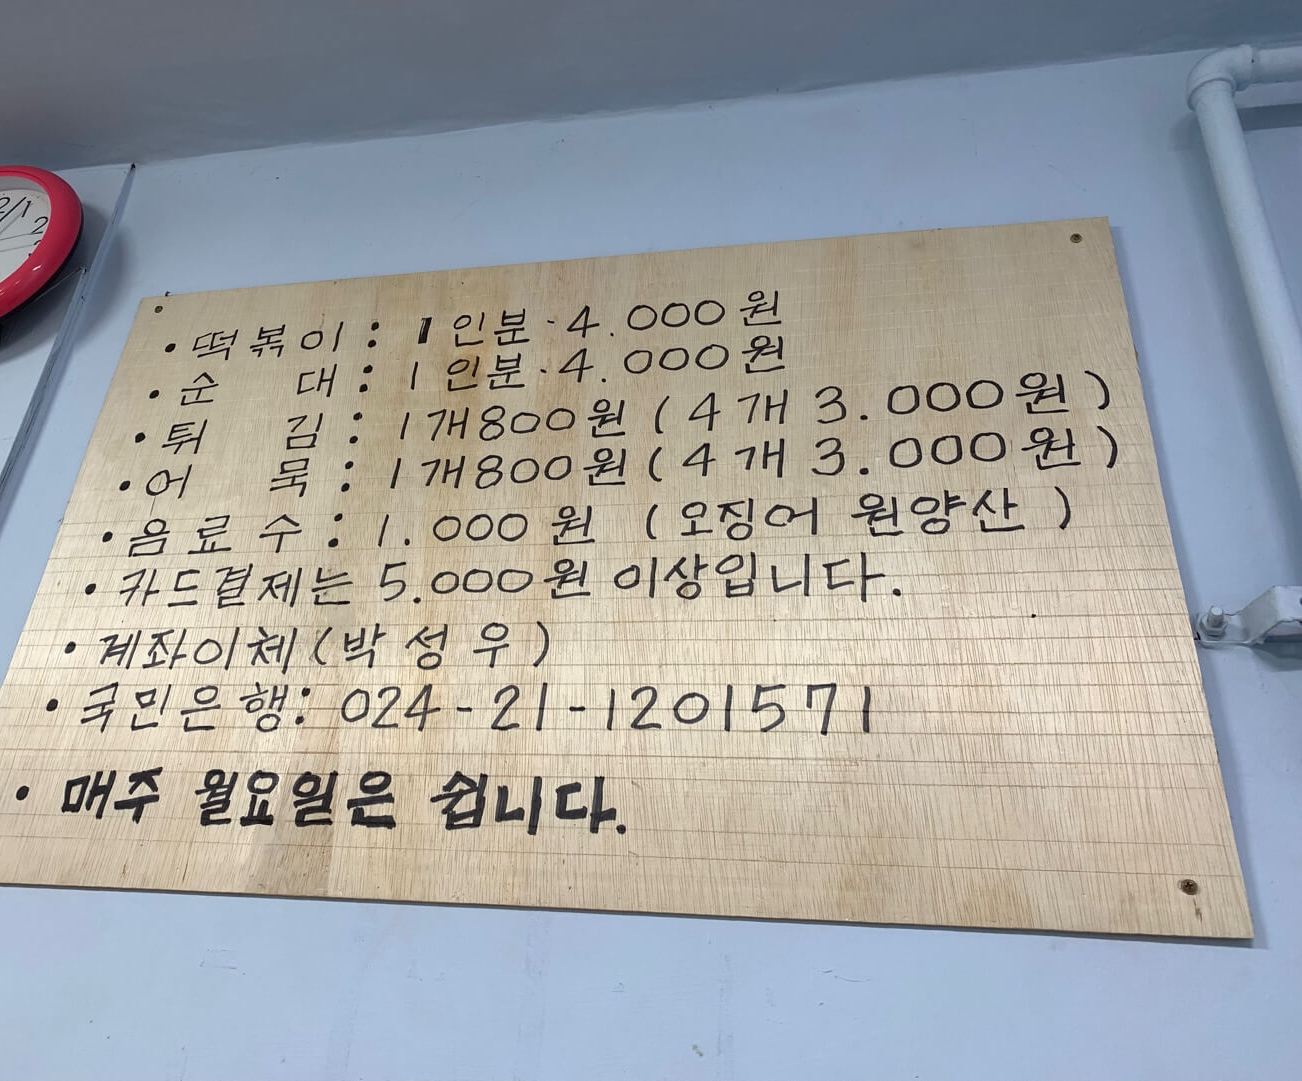 • 떡볶이 : 1인분·4.000원
• 순대 : 1인분·4.000원
• 튀김 : 1개800원 (4개 3.000원)
• 어묵 : 1개800원 (4개 3.000원)
• 음료수 : 1.000원 (오징어 원양산)
• 카드결제는 5.000원 이상입니다.
• 계좌이체 (박성우)
• 국민은행: 024-21-1201571
• 매주 월요일은 쉽니다.
1
2